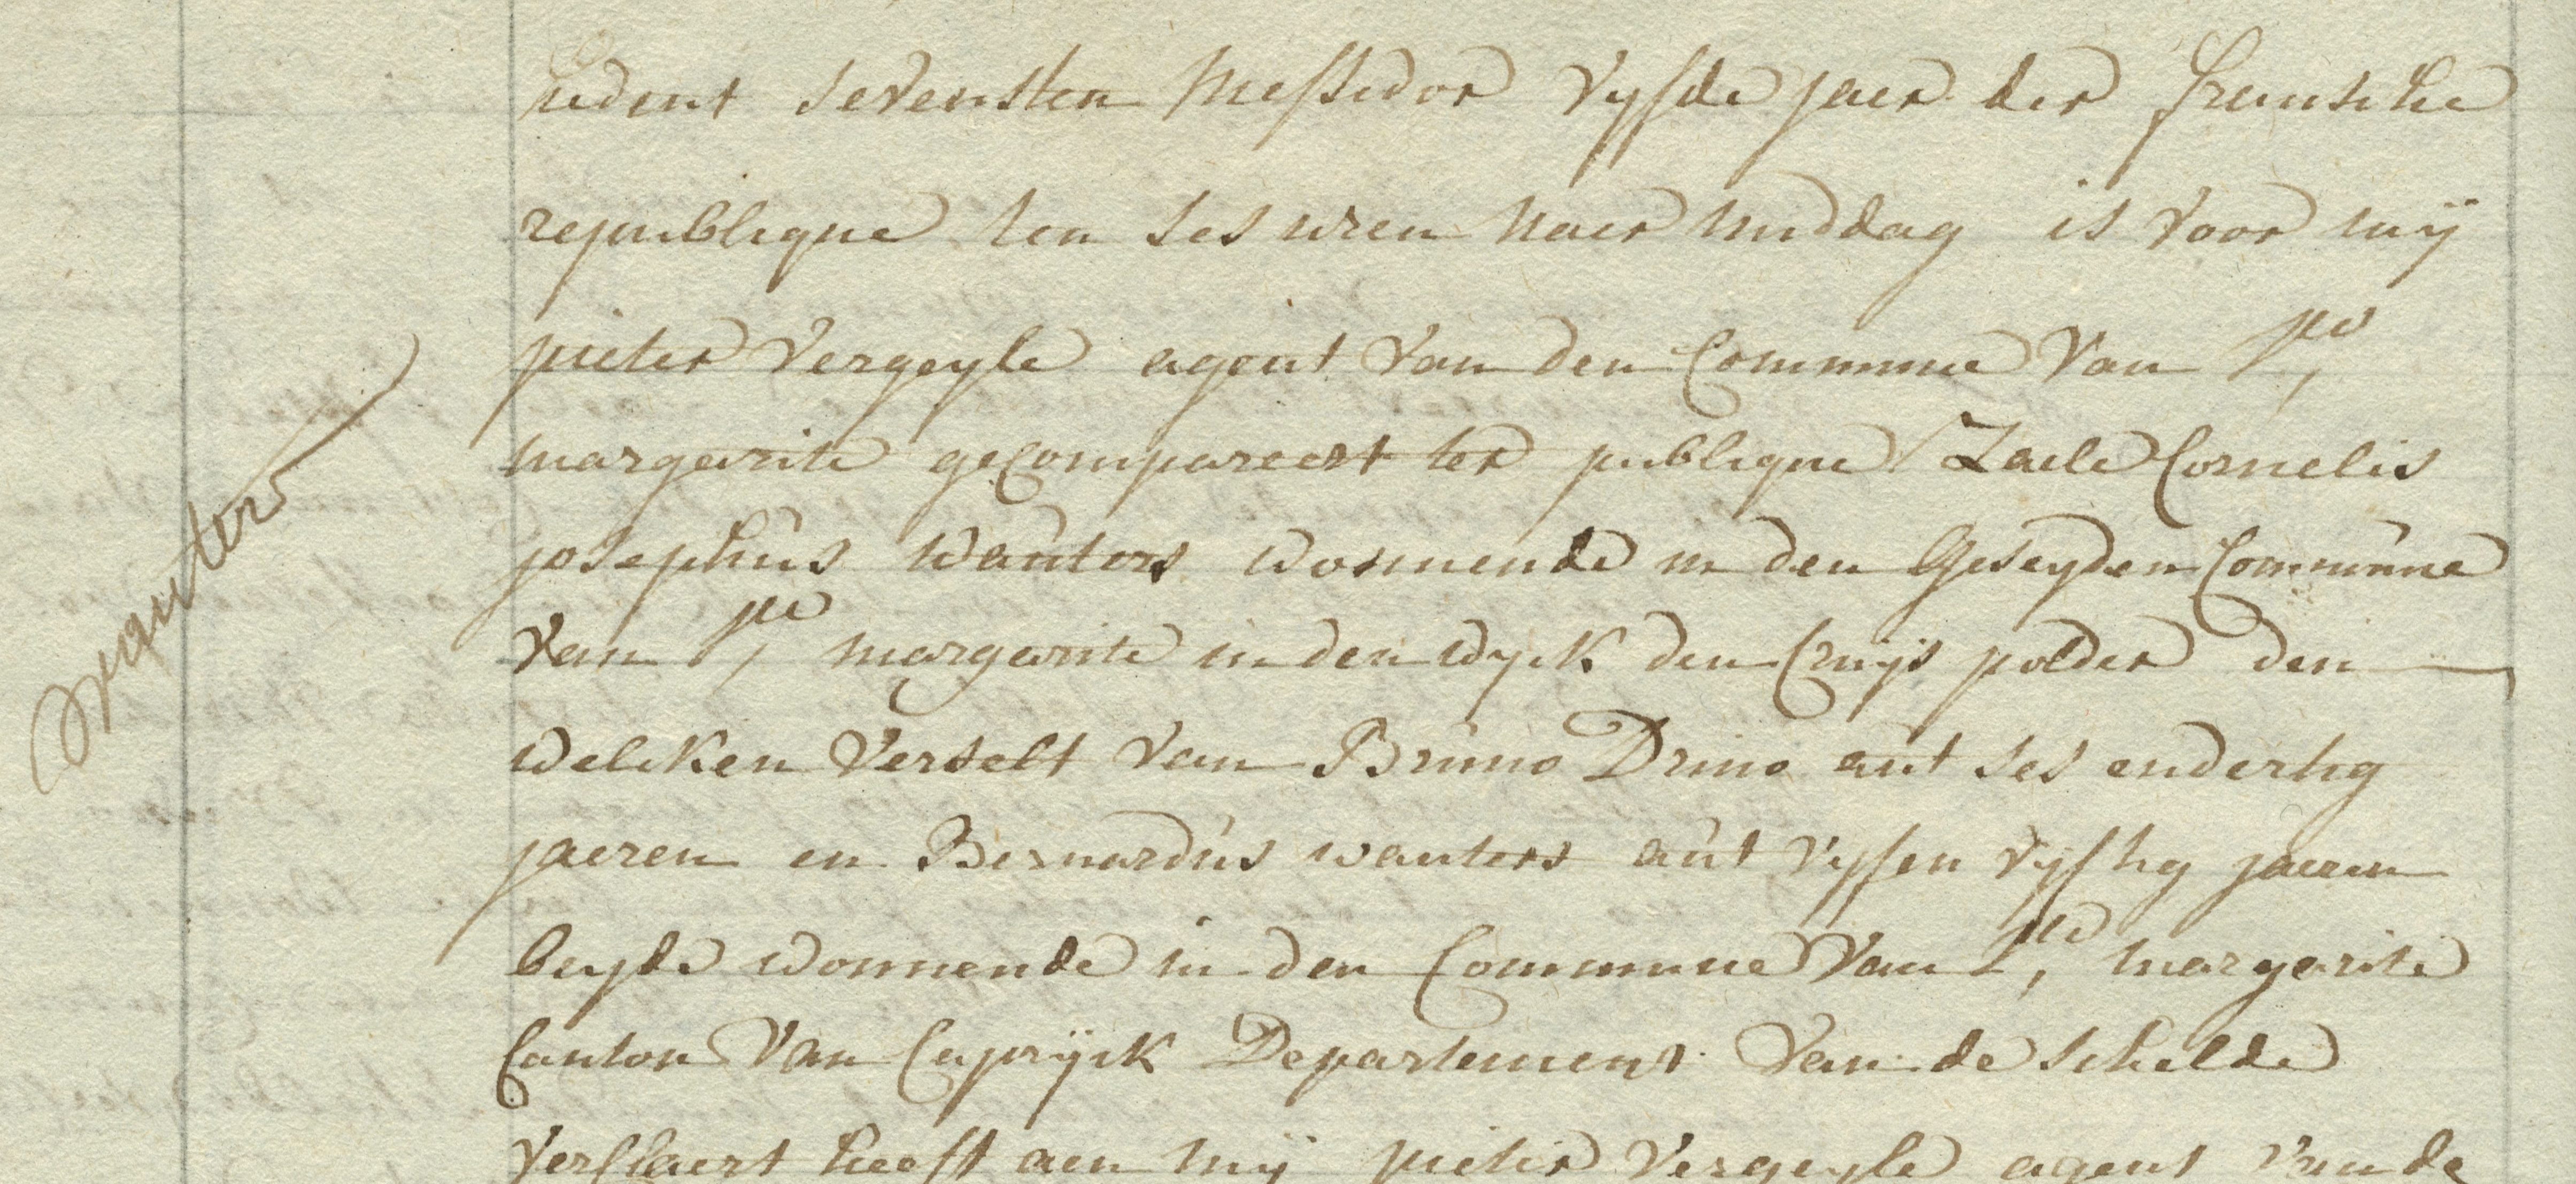 hedent sevensten Messidor vyfde jaer der fransche
republique ten ses uren naer middag is voor mÿ
pieter Vergeyle agent van den Commune van
margarite gecompareert ter publique Zaele Cornelis
josephus wauters woonnende in den geseyden Commune
wauters
van margarite in den wyck den Cruÿs polder den
welcken verselt van Bruno Drino aut ses en dertig
jaeren en Bernardus wauters aut vyf en vyftig jaeren
beyde wonnende in den Commune van margarite
Canton van Caprÿck Departement van de schelde
Verclaert heeft aen mÿ pieter Vergeyle agent van de